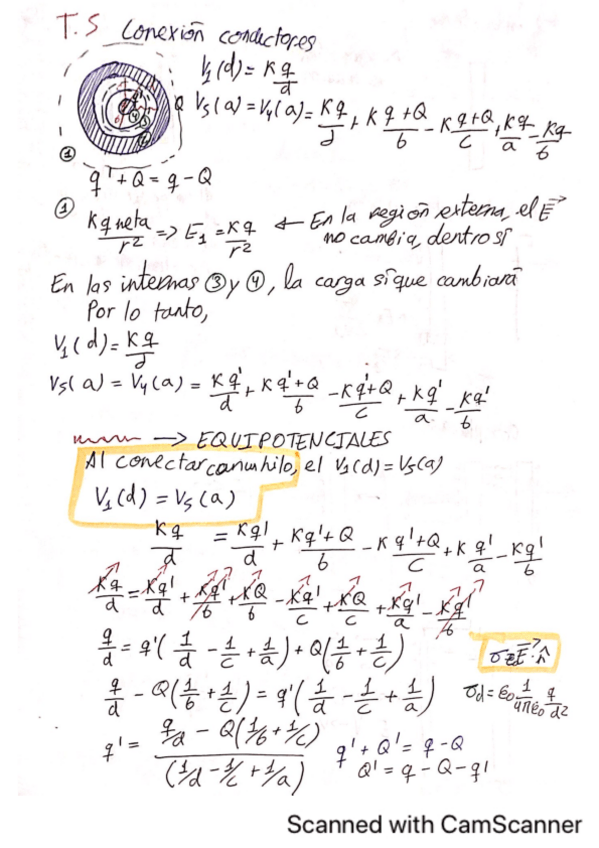 T.5 Conexión conductores
V₁(d)= K q/d
Q V₅(a)=V₄(a)= Kq/d + K q+Q/b - K q+Q/c + Kq/a - Kq/b
① q'+Q = q-Q
① K q neta/r² => E₁ = Kq/r² ← En la región externa, el E⃗
no cambia, dentro sí
En las internas ③ y ④, la carga sí que cambiará
Por lo tanto,
V₁(d)= Kq/d
V₅(a) = V₄(a) = Kq'/d + K q'+Q/b - K q'+Q/c + Kq'/a - Kq'/b
→ EQUIPOTENCIALES
Al conectar con un hilo, el V₁(d)=V₅(a)
V₁(d) = V₅(a)
Kq/d = Kq'/d + Kq'+Q/b - K q'+Q/c + K q'/a - Kq'/b
Kq/d = Kq'/d + Kq'/b + KQ/b - Kq'/c + KQ/c + Kq'/a - Kq'/b
q/d = q'(1/d - 1/c + 1/a) + Q(1/b + 1/c)
σ=E⃗·n̂
q/d - Q(1/b + 1/c) = q'(1/d - 1/c + 1/a)
σd = ε₀ 1/4πε₀ q/d²
q' = q/d - Q(1/b + 1/c) / (1/d - 1/c + 1/a)
q' + Q' = q-Q
Q' = q-Q-q'
Scanned with CamScanner